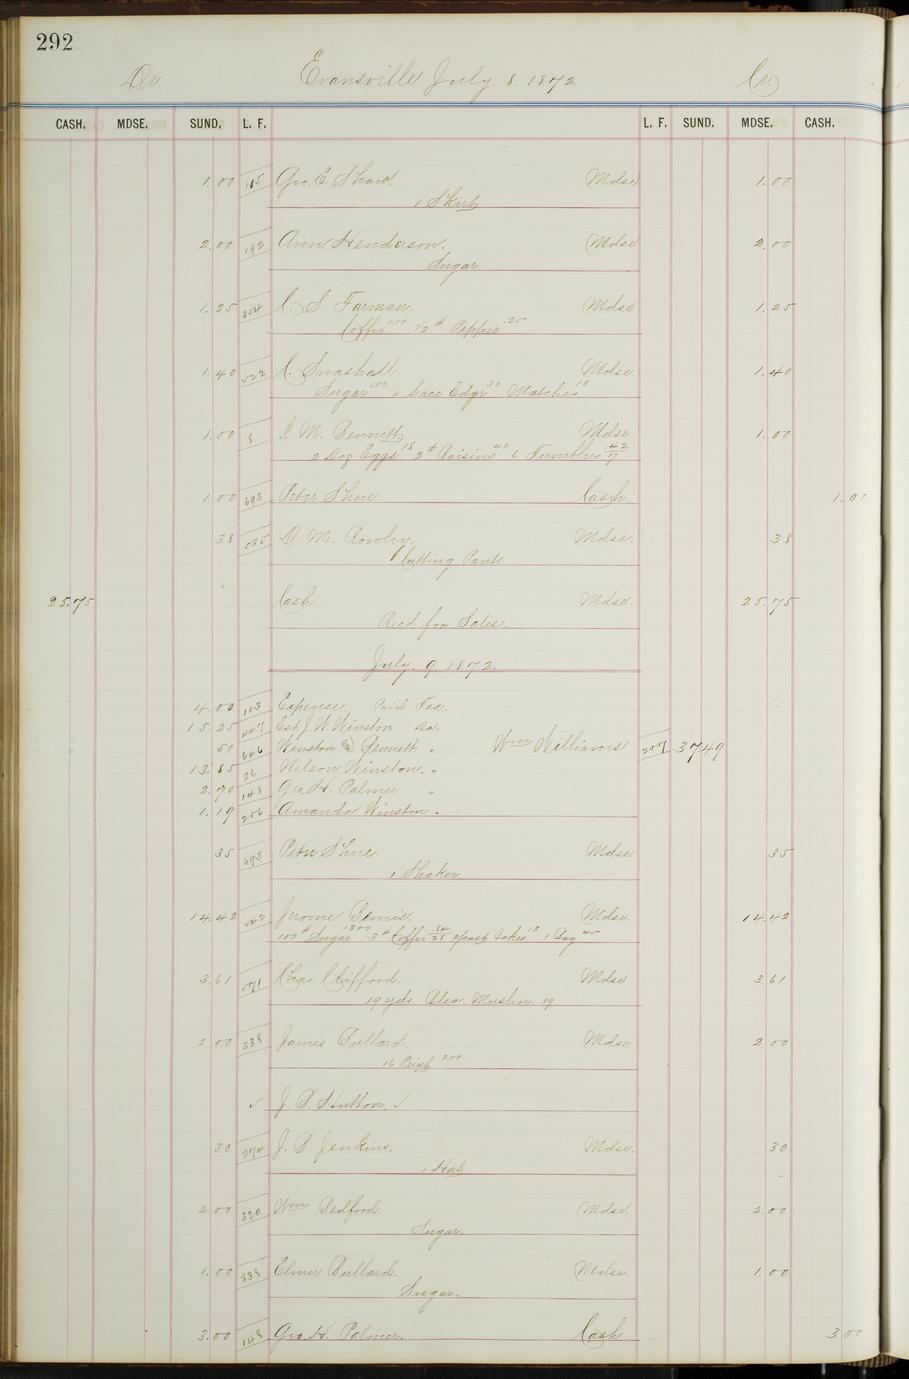 292
Dr. Evansville July 8. 1872. Cr
CASH. MDSE. SUND. L. F. L. F. SUND. MDSE. CASH.
1.00 Geo. E. Shaw. Mdse 1.00
1 Skirt
2.00 192 Ann Henderson. Mdse 2.00
Sugar
1.25 C. S. Farman. Mdse 1.25
Coffee 1.00 1/2 # Pepper .25
1.40 522 C. Mdse 1.40
Sugar 1.00 6 Lace Edgr 30 Matches 10
1.00 8 I. M. Bennett Mdse 1.00
2 Doz Eggs 18 2 # Raisins 40 6 Tumblers .42/7
1.00 693 Peter Shue Cash 1.00
38 535 D. M. Rowley. Mdse. 38
Cutting Pants
25.75 Cash Mdse. 25.75
Rec'd for Sales.
July. 9. 1872.
4.00 103 Expense Paid Tax.
15.25 447 Est. J. W. Winston Do.
50 646 Winston & Bennett " Wm Williams 257 37 49
13.85 26 Nelson Winston. "
2.70 148 Geo. H. Palmer "
1.19 256 Amanda Winston "
35 693 Peter Shue. Mdse 35
1 Shaker
14.42 Jerome Bemis. Mdse. 14.42
100 # Sugar 13.00 3 # Coffee 84/28 Yeast Cakes 13 1 Bag 45
3.61 571 Chas. Clifford. Mdse 3.61
19 yds. Blea. Muslin. 19
2.00 338 James Bullard. Mdse 2.00
16 Print 200
✓ J. B. Hutton. ✓
30 274 J. B. Jenkins. Mdse. 30
1 Hat
2.00 320 Wm Bedford. Mdse 2.00
Sugar.
1.00 338 Elmer Bullard. Mdse. 1.00
Sugar.
3.00 148 Geo. H. Palmer. Cash 3.00